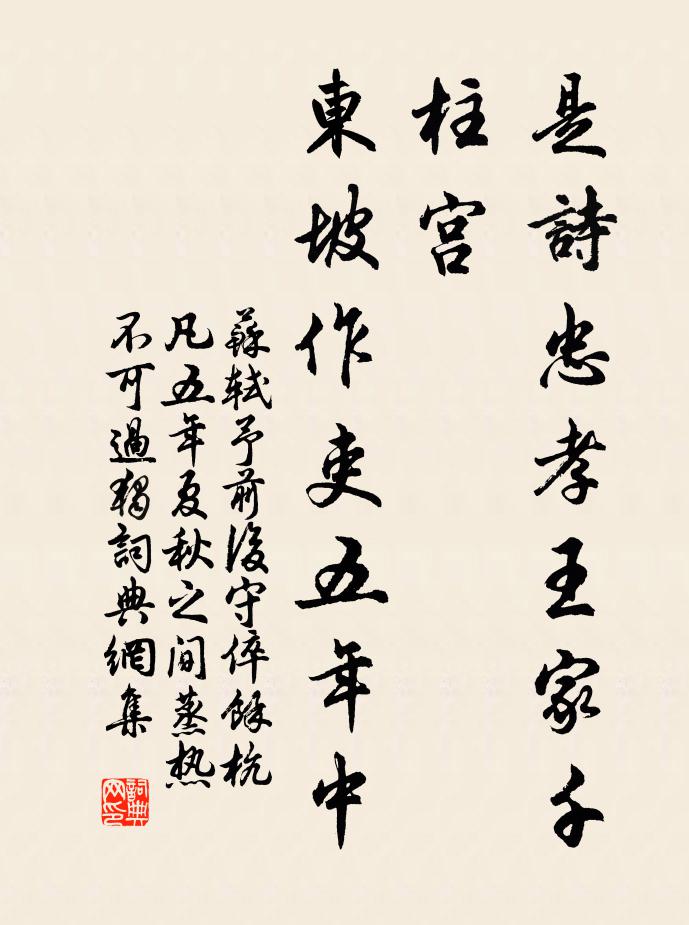 是詩忠孝王家千
柱宮
東坡作吏五年中
蘇軾予前後守倅餘杭
凡五年夏秋之间蒸热
不可過獨詞典網集
詞典网印